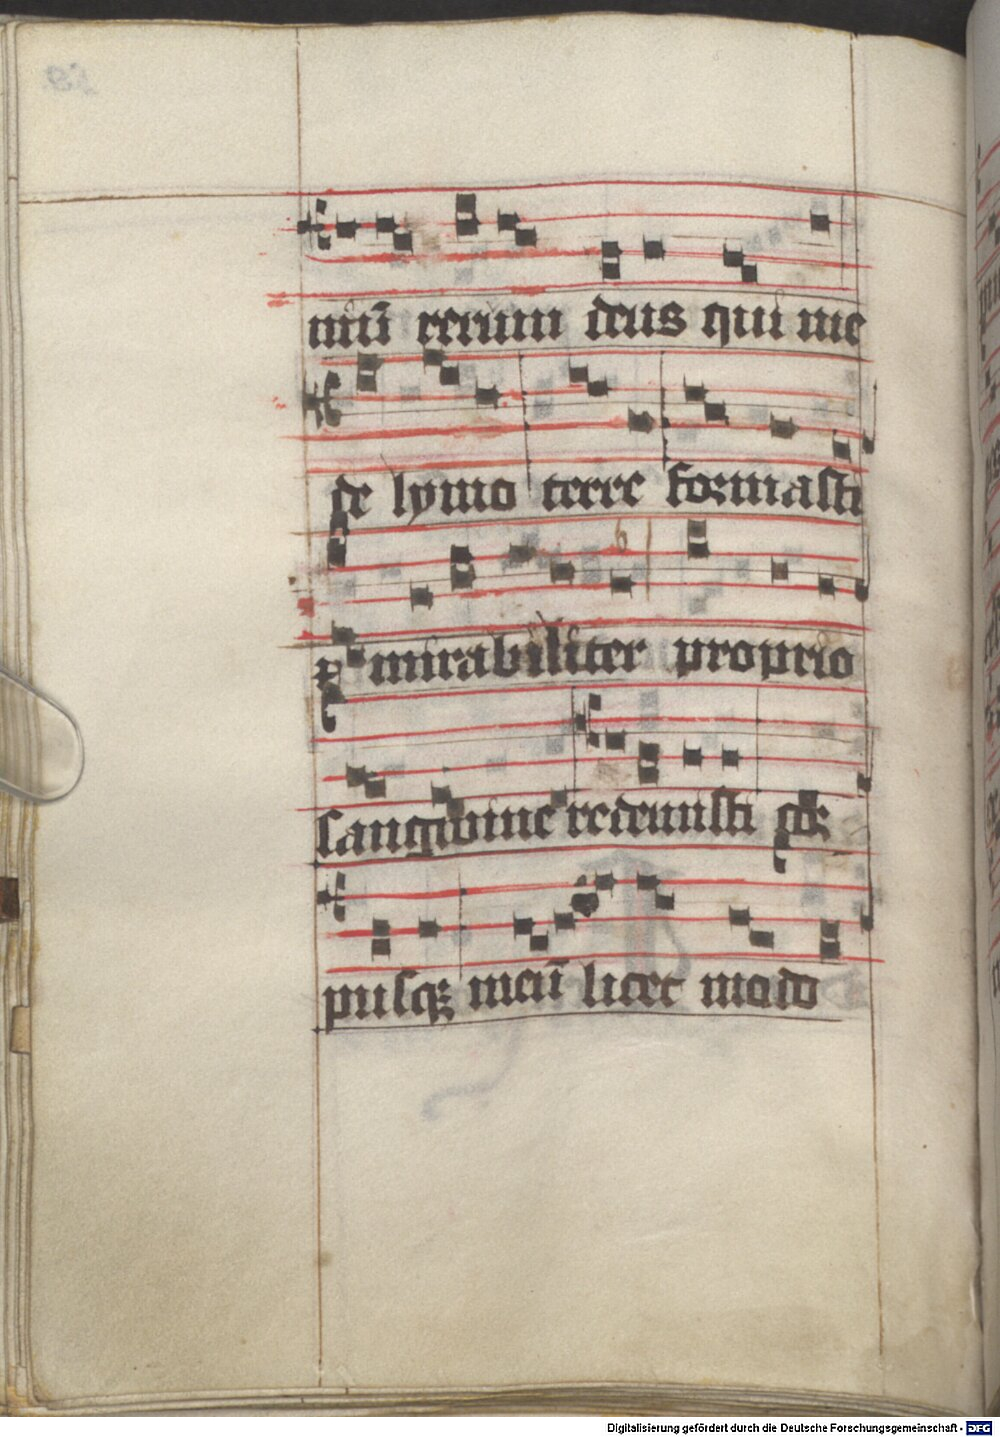 niū rerum deus qui me
de lymo terre formasti
⁊ mirabiliter proprio
sanguine redemisti cor
pusqꝫ meū licet modo
Digitalisierung gefördert durch die Deutsche Forschungsgemeinschaft - DFG